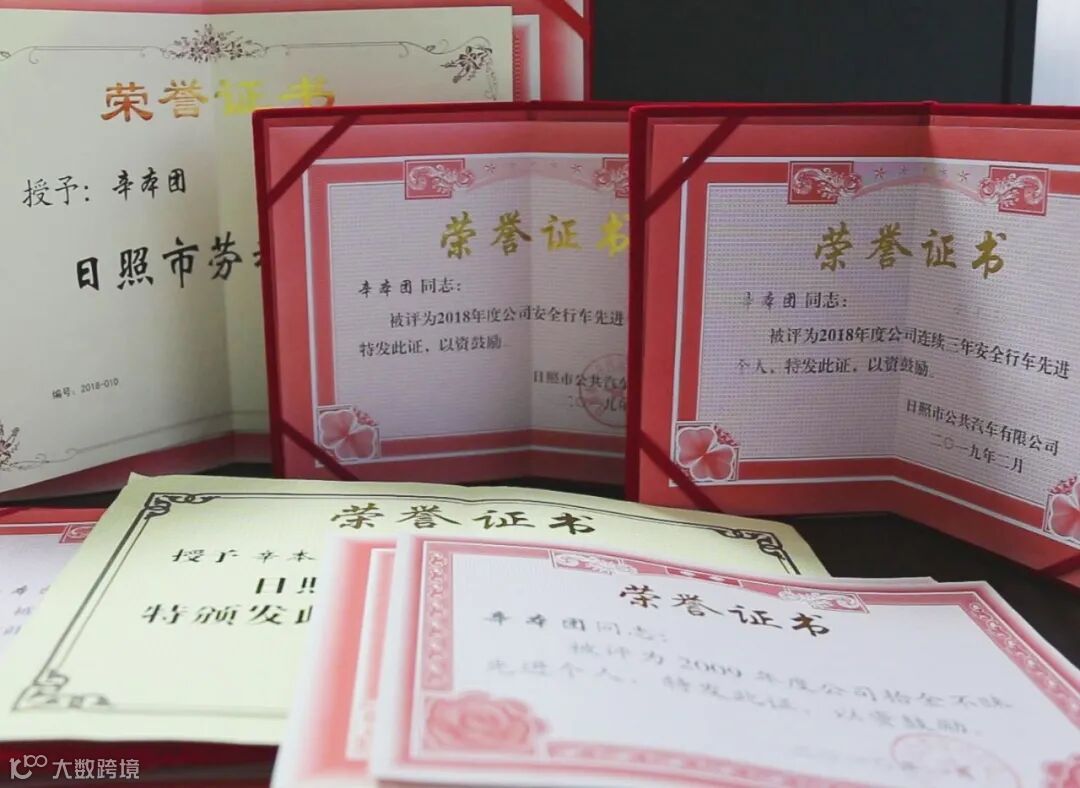 荣誉证书
授予：辛本团
日照市劳
编号：2018-010
荣誉证书
辛本团同志：
被评为2018年度公司安全行车先进
特发此证，以资鼓励
日照市公共汽车
二〇一九年
荣誉证书
辛本团同志：
被评为2018年度公司连续三年安全行车先进
个人，特发此证，以资鼓励
日照市公共汽车有限公司
二〇一九年二月
荣誉证书
授予辛本
日照
特颁发此
荣誉证书
辛本团同志：
被评为2009年度公司拾金不昧
先进个人，特发此证，以资鼓励.
大数跨境